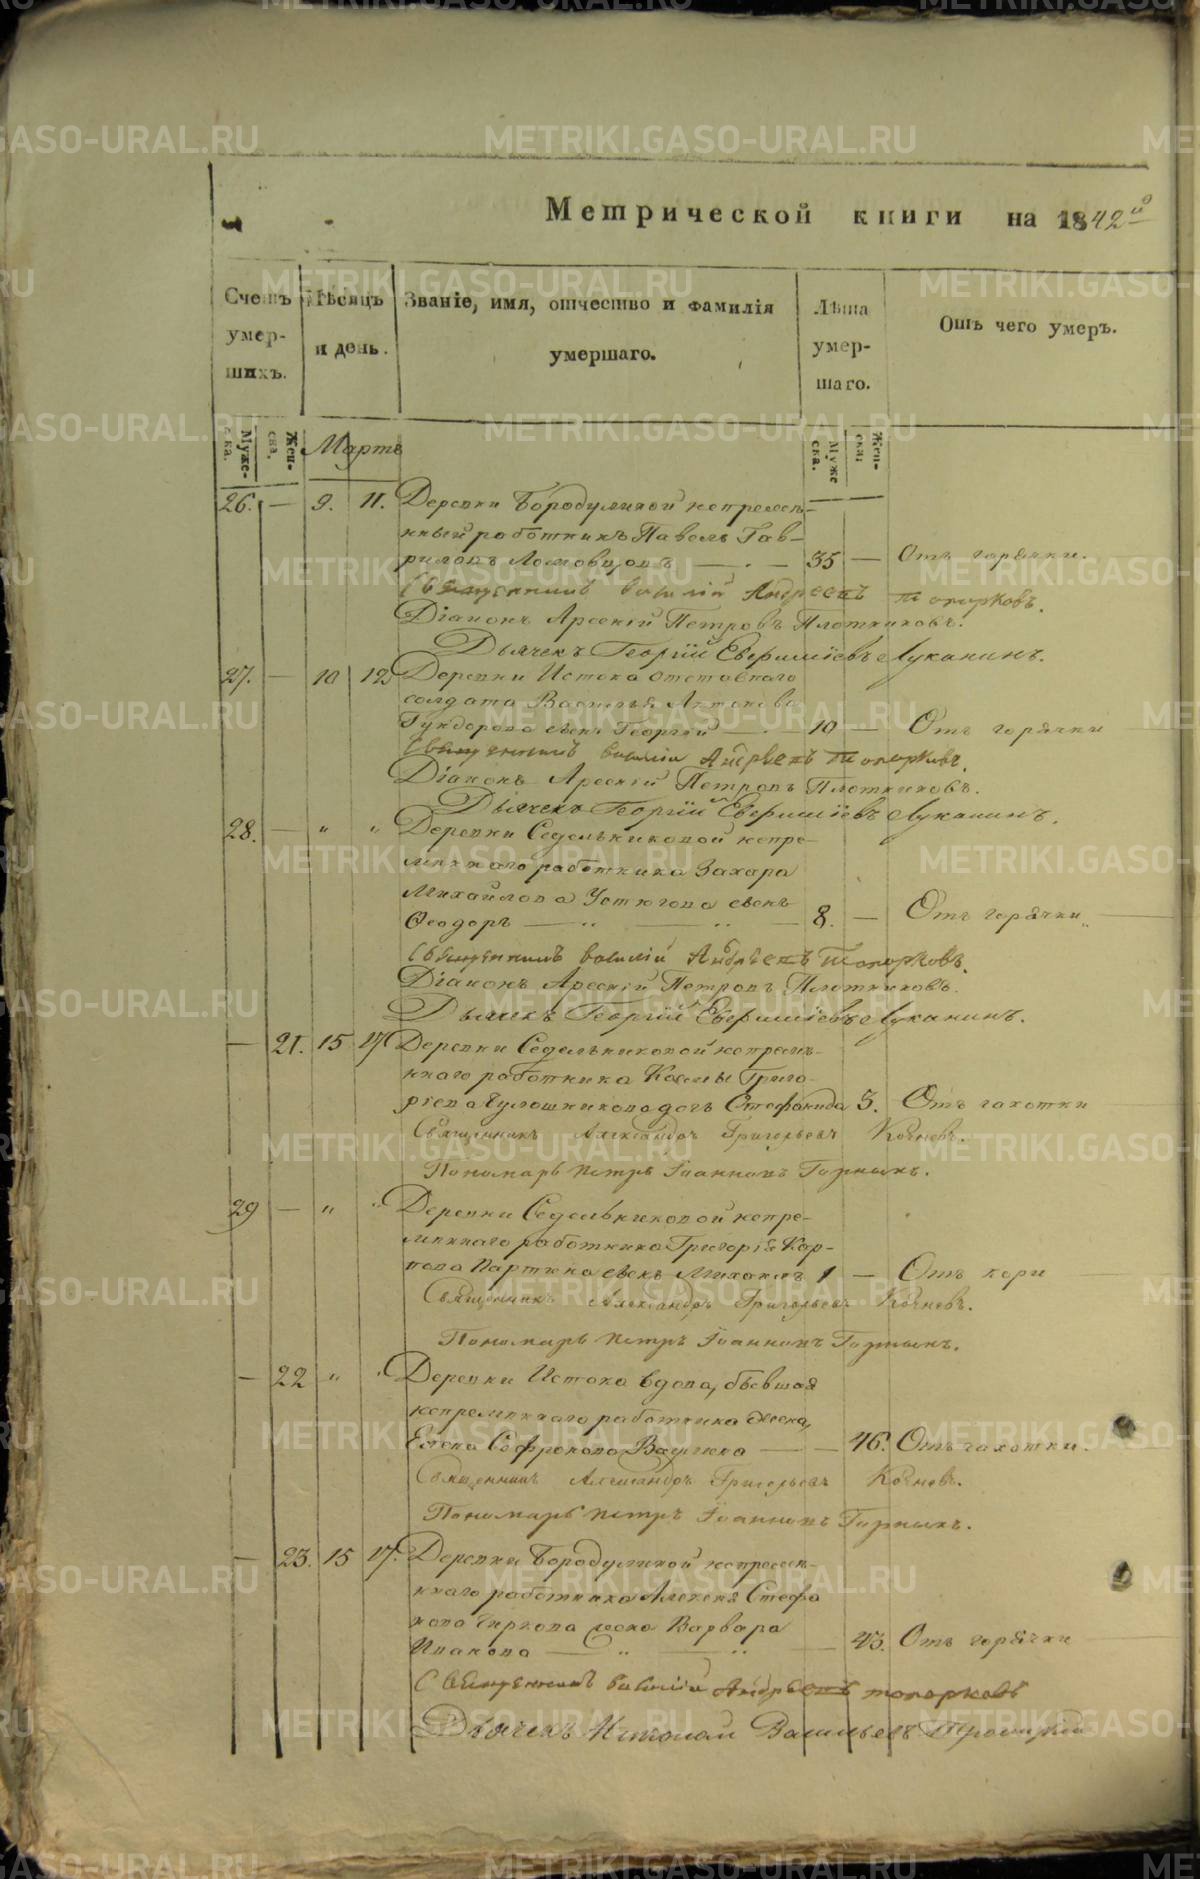 Метрической книги на 1842й
Счетъ умер-шихъ.
Мѣсяцъ и день.
Званіе, имя, отчество и фамилія умершаго.
Лѣта умер-шаго.
Отъ чего умеръ.
Муже-ска.
Жен-ска.
Мартъ
Муже ска.
Жен-ска
26. — 9. 11. Деревни Бородулиной непремѣн-
ный работникъ Павелъ Гав-
риловъ Ломовцовъ — 35 — Отъ горячки.
Священникъ Василій Андреевъ Топорковъ.
Діаконъ Арсеній Петровъ Плотниковъ.
Дьячекъ Георгій Евфиміевъ Луканинъ.
27. — 10 12 Деревни Истока отставнаго
солдата Василья Антонова
сынъ Георгій — 10 — Отъ горячки
Священникъ Василій Андреевъ Топорковъ.
Діаконъ Арсеній Петровъ Плотниковъ.
Дьячекъ Георгій Евфиміевъ Луканинъ.
28. — „ „ Деревни Седельниковой непре-
мѣннаго работника Захара
Михайлова Устюгова сынъ
Ѳеодоръ — „ — „ — 8. — Отъ горячки
Священникъ Василій Андреевъ Топорковъ.
Діаконъ Арсеній Петровъ Плотниковъ.
Дьячекъ Георгій Евфиміевъ Луканинъ.
— 21. 15 17 Деревни Седельниковой непремѣ-
ннаго работника Козмы Григо-
рьева дочь Стефанида 3. Отъ чахотки
Священникъ Александръ Григорьевъ Кочневъ.
Пономарь Петръ Іоанновъ Горныхъ.
29 — „ „ Деревни Седельниковой непре-
мѣннаго работника Григорія Кар-
пова Партина сынъ Михаилъ 1 — Отъ кори
Священникъ Александръ Григорьевъ Кочневъ.
Пономарь Петръ Іоанновъ Горныхъ.
— 22 „ „ Деревни Истока вдова, бывшая
непремѣннаго работника жена,
Елена Софронова — 46. Отъ чахотки.
Священникъ Александръ Григорьевъ Кочневъ.
Пономарь Петръ Іоанновъ Горныхъ.
— 23. 15 17. Деревни Бородулиной непремѣн-
ннаго работника Алексѣя Стефа
нова Чиркова жена Варвара
Иванова — „ — „ — 43. Отъ горячки
Священникъ Василій Андреевъ Топорковъ
Дьячекъ Николай Васильевъ Троицкій
METRIKI.GASO-URAL.RU